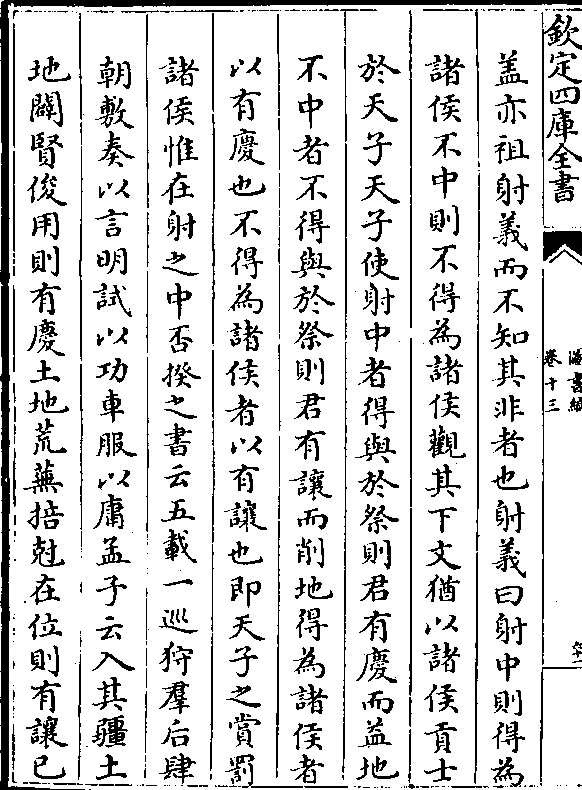 欽定四庫全書
卷十三
蓋亦祖射義而不知其非者也射義曰射中則得為
諸侯不中則不得為諸侯觀其下文猶以諸侯貢士
於天子天子使射中者得與於祭則君有慶而益地
不中者不得與於祭則君有讓而削地得為諸侯者
以有慶也不得為諸侯者以有讓也即天子之賞罰
諸侯惟在射之中否揆之書云五載一巡狩羣后肆
朝敷奏以言明試以功車服以庸孟子云入其疆土
地闢賢俊用則有慶土地荒蕪掊尅在位則有讓已